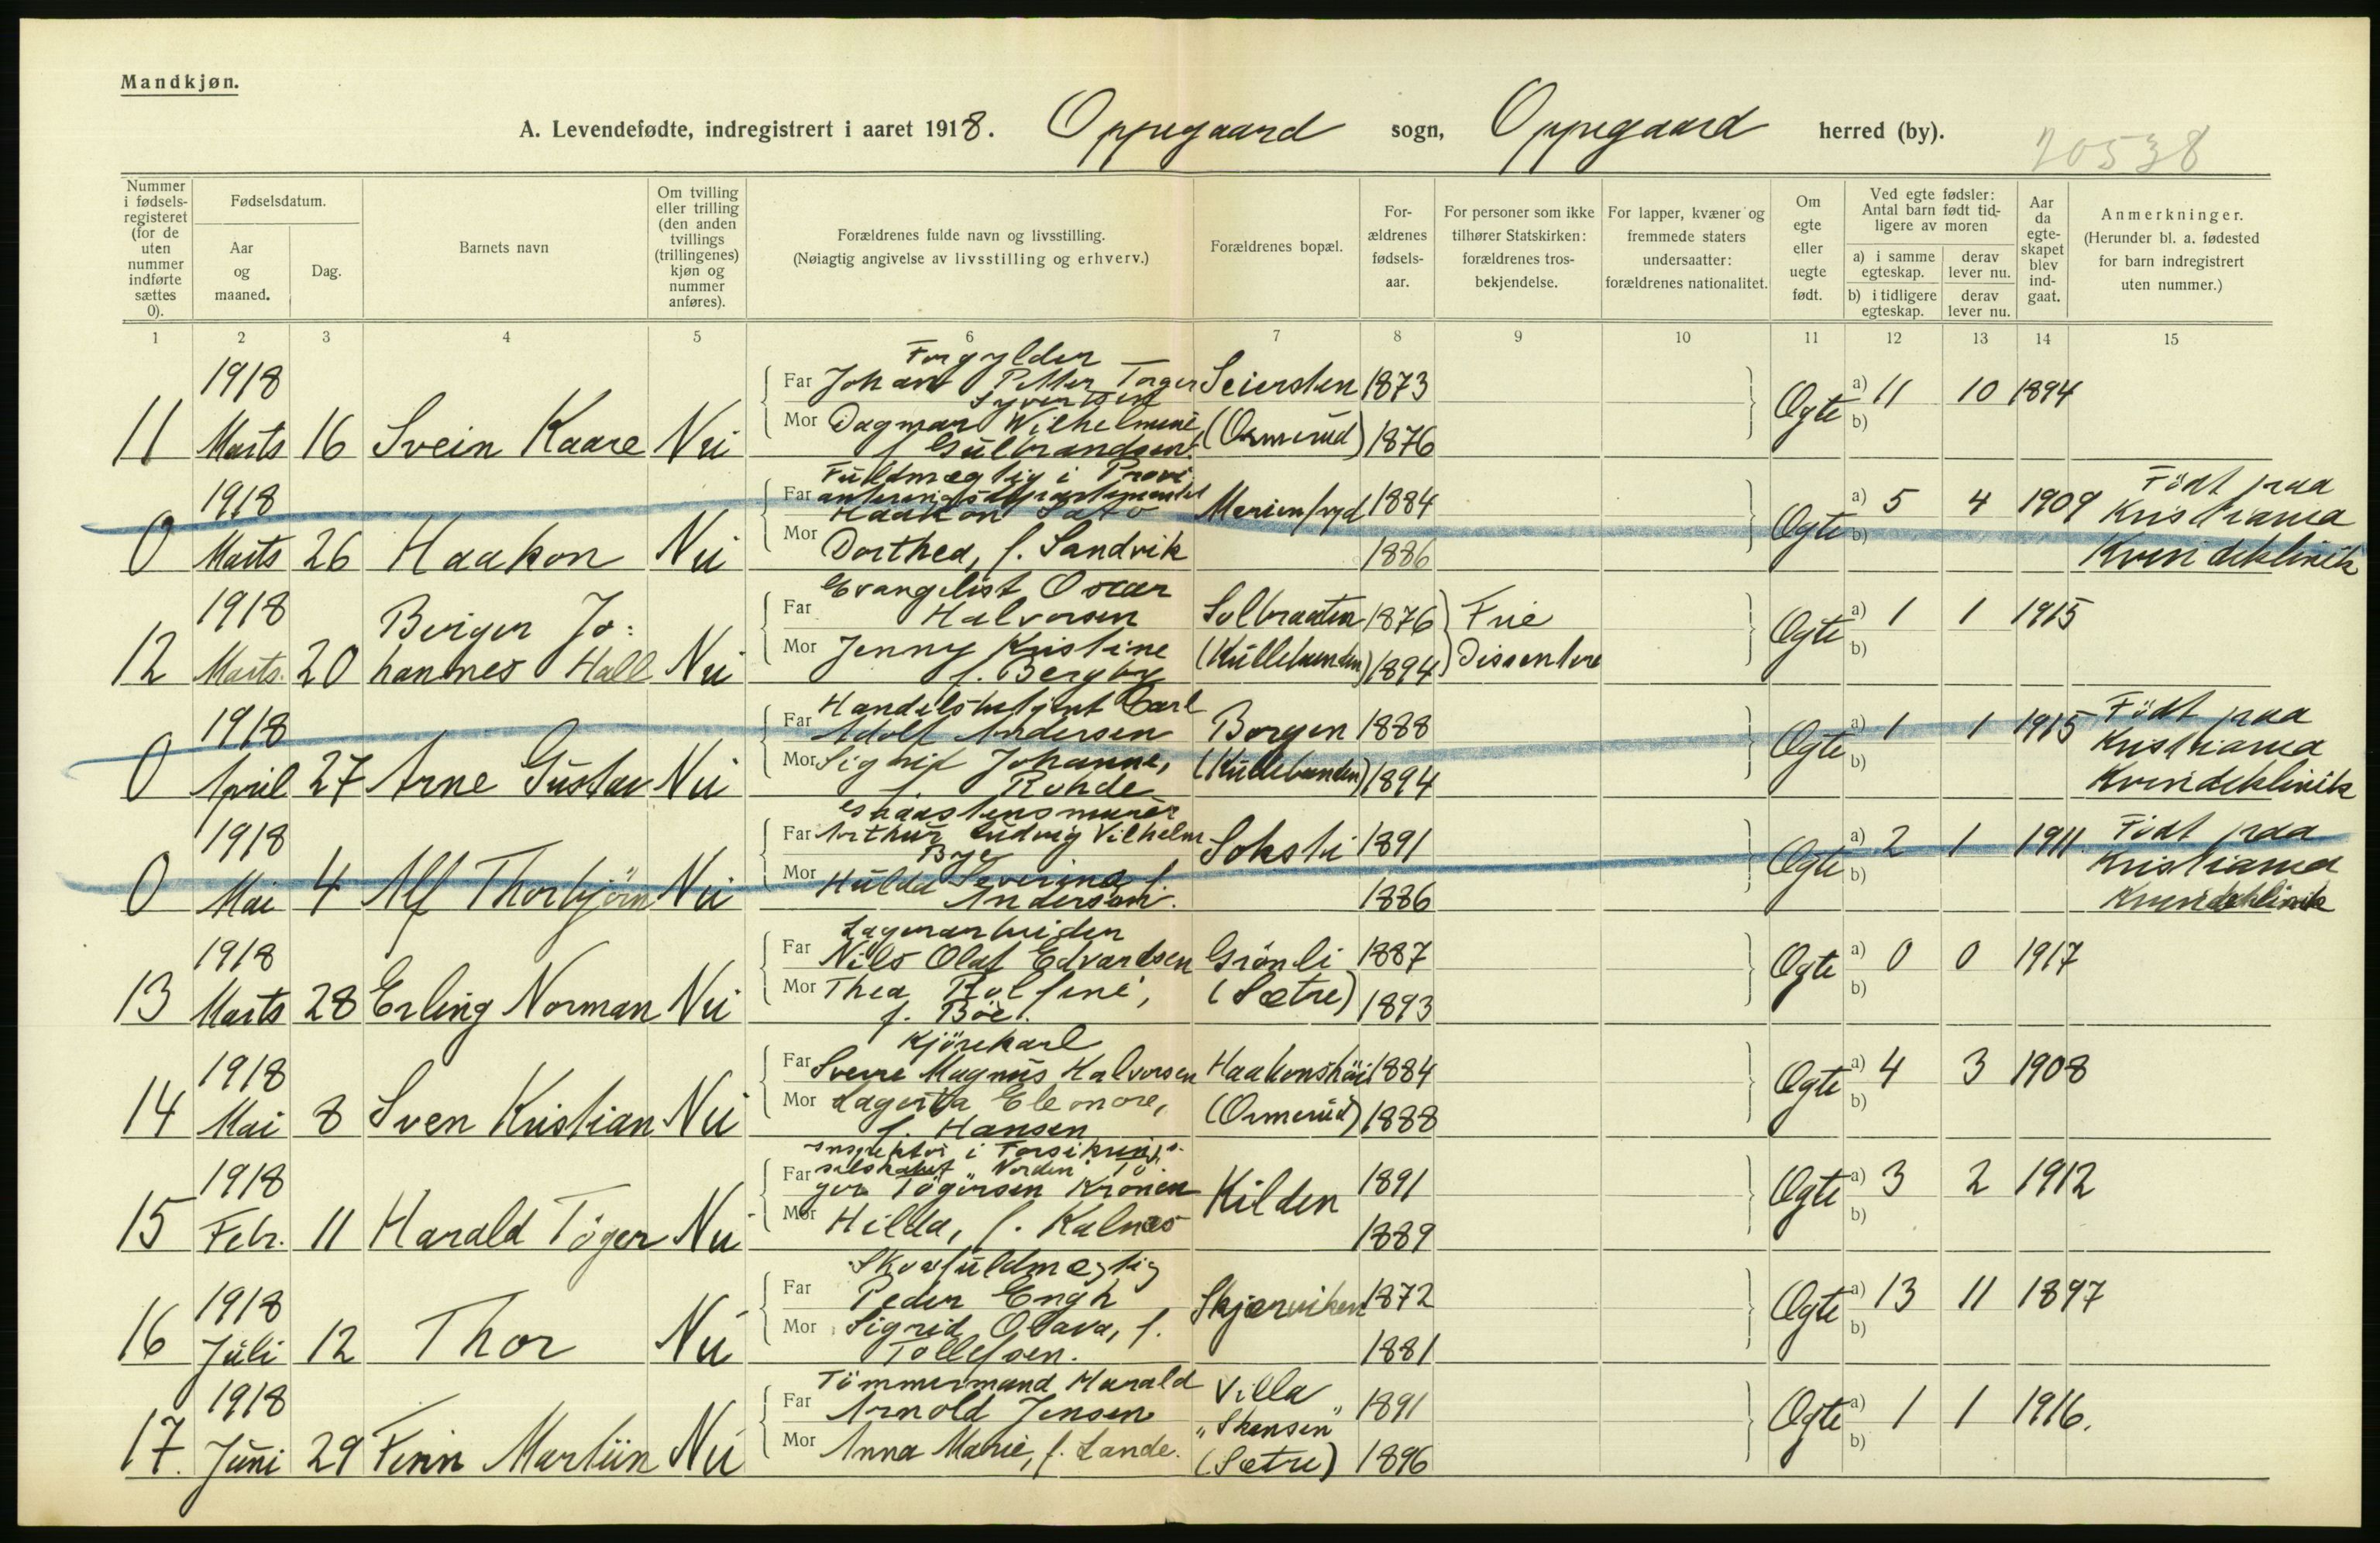 Mandkjøn.
A. Levendefødte, indregistrert i aaret 1918. Oppegaard sogn, Oppegaard herred (by).
20538
Nummer i fødselsregisteret (for de uten nummer indførte sættes 0).
Fødselsdatum.
Aar og maaned.
Dag.
Barnets navn
Om tvilling eller trilling (den anden tvillings (trillingenes) kjøn og nummer anføres).
Forældrenes fulde navn og livsstilling.
(Nøiagtig angivelse av livsstilling og erhverv.)
Forældrenes bopæl.
Forældrenes fødselsaar.
For personer som ikke tilhører Statskirken: forældrenes trosbekjendelse.
For lapper, kvæner og fremmede staters undersaatter: forældrenes nationalitet.
Om egte eller uegte født.
Ved egte fødsler: Antal barn født tidligere av moren
a) i samme egteskap.
derav lever nu.
b) i tidligere egteskap.
derav lever nu.
Aar da egteskapet blev indgaat.
Anmerkninger.
(Herunder bl. a. fødested for barn indregistrert uten nummer.)
1 2 3 4 5 6 7 8 9 10 11 12 13 14 15
11 1918 Marts 16 Svein Kaare Nei
Forgylder
Far Johan Petter Torger Syvertsen Seiersten 1873
Mor Dagmar Wilhelmine, f. Gulbrandsen (Ormerud) 1876
Ogte a) 11 10 1894
b)
0 1918 Marts 26 Haakon Nei
Fuldmægtig i Provi
Far anteringsdepartementet Haakon Sato Merienfryd 1884
Mor Dorthea, f. Sandvik 1886
Ogte a) 5 4 1909 Födt paa Kristiania Kvindeklinik
b)
12 1918 Marts. 20 Berger Jo: hannes Hall Nei
Evangelist Oscar
Far Halvorsen Solbraaten 1876 Frie
Mor Jenny Kristine f. Bergby (Kullebunden) 1894 Dissentere
Ogte a) 1 1 1915
b)
0 1918 April 27 Arne Gustav Nei
Handelsbetjent Carl
Far Adolf Andersen Borgen 1888
Mor Sigrid Johanne, f. Rohde (Kullebunden) 1894
Ogte a) 1 1 1915 Födt paa Kristiania Kvindeklinik
b)
0 1918 Mai 4 Alf Thorbjörn Nei
Far Arthur Ludvig Vilhelm Bye Soksti 1891
Mor Hulda Severine f. Anderson. 1886
Ogte a) 2 1 1911. Födt paa Kristiania Kvindeklinik
b)
13 1918 Marts 28 Erling Norman Nei
Lagerarbeider
Far Nils Olaf Edvardsen Grönli 1887
Mor Thea Rolfine, f. Böe. (Sætre) 1893
Ogte a) 0 0 1917
b)
14 1918 Mai 8 Sven Kristian Nei
Kjörekarl
Far Sverre Magnus Halvorsen Haakonshöi 1884
Mor Lagerta Eleonore, f. Hansen (Ormerud) 1888
Ogte a) 4 3 1908
b)
15 1918 Febr. 11 Harald Töger Nei
Inspektör i Forsikrings-
Far selskabet "Norden" Tö: ger Tögersen Kronen Kilden 1891
Mor Hilda, f. Kalnæs 1889
Ogte a) 3 2 1912
b)
16 1918 Juli 12 Thor Nei
Skovfuldmægtig
Far Peder Engh Skjærviken 1872
Mor Sigrid Olava, f. Tollefsen. 1881
Ogte a) 13 11 1897
b)
17. 1918 Juni 29 Finn Martiin Nei
Tömmermand Harald
Far Arnold Jensen Villa "Skansen" 1891
Mor Anna Marie, f. Lande. (Sætre) 1896
Ogte a) 1 1 1916.
b)